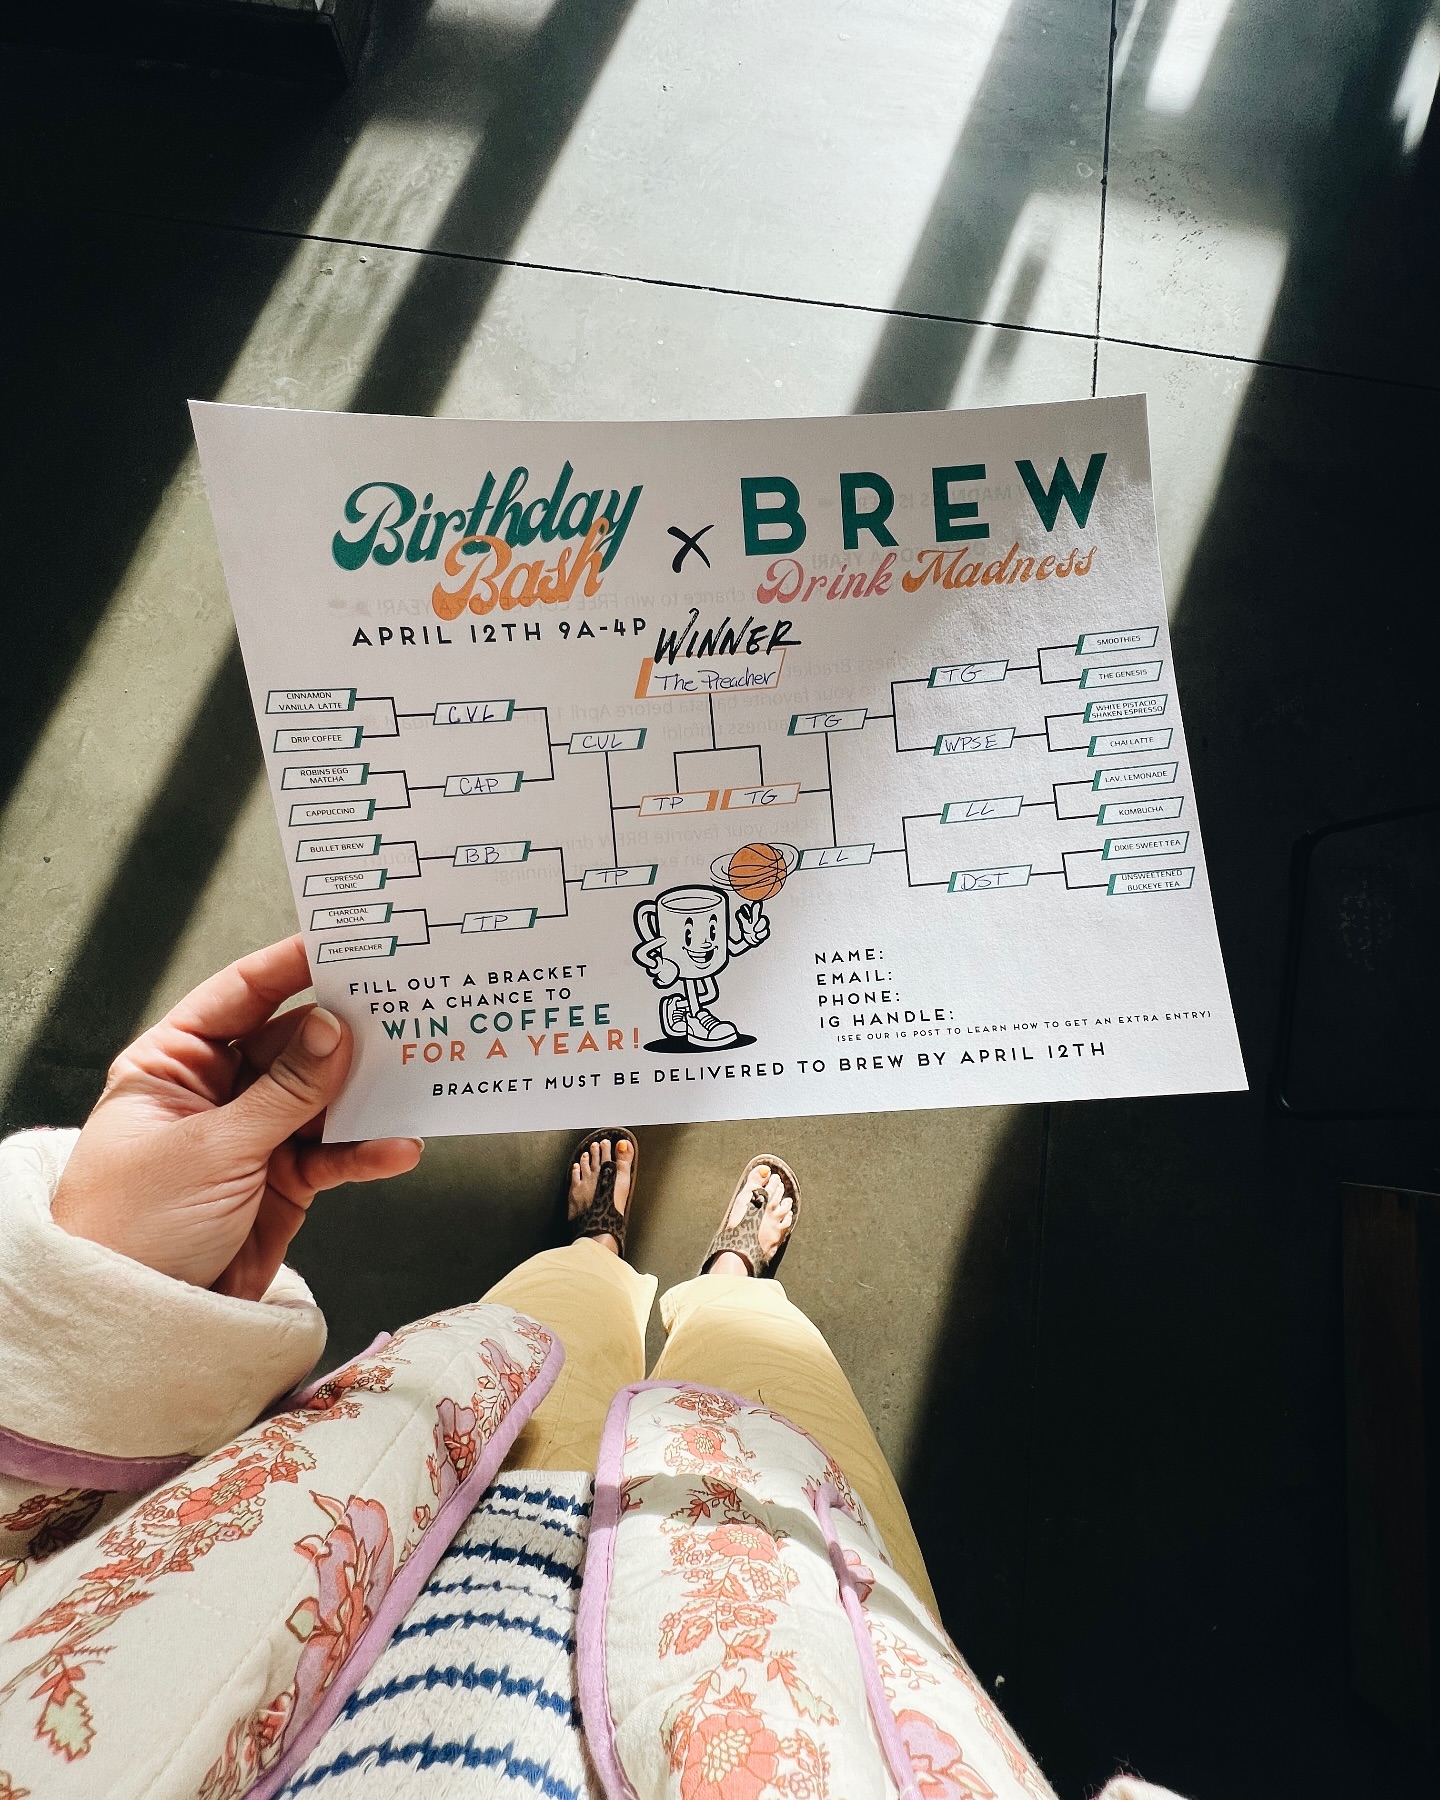 Birthday
Bash
x
BREW
Drink Madness
APRIL 12TH 9A-4P
WINNER
The Preacher
CINNAMON
VANILLA LATTE
DRIP COFFEE
ROBINS EGG
MATCHA
CAPPUCCINO
BULLET BREW
ESPRESSO
TONIC
CHARCOAL
MOCHA
THE PREACHER
CVL
CAP
BB
TP
CVL
TP
TP
TG
TG
LL
TG
WPSE
LL
DST
SMOOTHIES
THE GENESIS
WHITE PISTACIO
SHAKEN ESPRESSO
CHAI LATTE
LAV. LEMONADE
KOMBUCHA
DIXIE SWEET TEA
UNSWEETENED
BUCKEYE TEA
FILL OUT A BRACKET
FOR A CHANCE TO
WIN COFFEE
FOR A YEAR!
NAME:
EMAIL:
PHONE:
IG HANDLE:
(SEE OUR IG POST TO LEARN HOW TO GET AN EXTRA ENTRY)
BRACKET MUST BE DELIVERED TO BREW BY APRIL 12TH